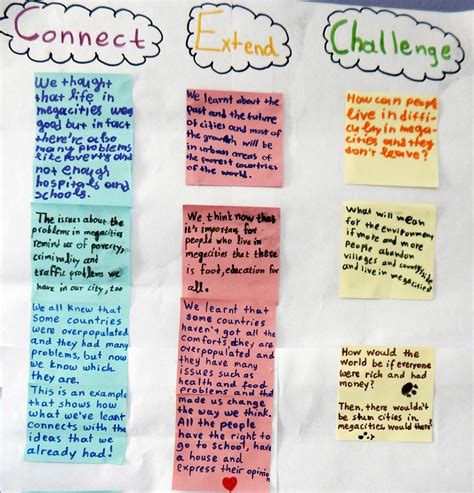 Connect
We thought
that life in
megacities was
good but in fact
there're also
many problems
like poverty and
not enough
hospitals and
schools.
The issues about the
problems in megacities
remind us of poverty,
criminality and
traffic problems we
have in our city, too
We all knew that
some countries
were overpopulated
and they had many
problems, but now
we know which
they are.
This is an example
that shows how
what we've leant
connects with the
ideas that we
already had!
Extend
We learnt about the
past and the future
of cities and most of
the growth will be
in urban areas of
the poorest countries
of the world.
We think now that
it's important for
people who live in
megacities that there
is food, education for
all.
We learnt that
some countries
haven't got all the
comforts, they are
overpopulated and
they have many
issues such as
health and food
problems and that
made us change
the way we think.
All the people
have the right to
go to school, have
a house and
express their opinion
Challenge
How can people
live in diffi-
culty in mega-
cities and they
don't leave?
What will mean
for the environment
if more and more
people abandon
villages and countryside
and live in megacities?
How would the
world be if everyone
were rich and had
money?
Then, there wouldn't
be slum cities in
megacities would there?